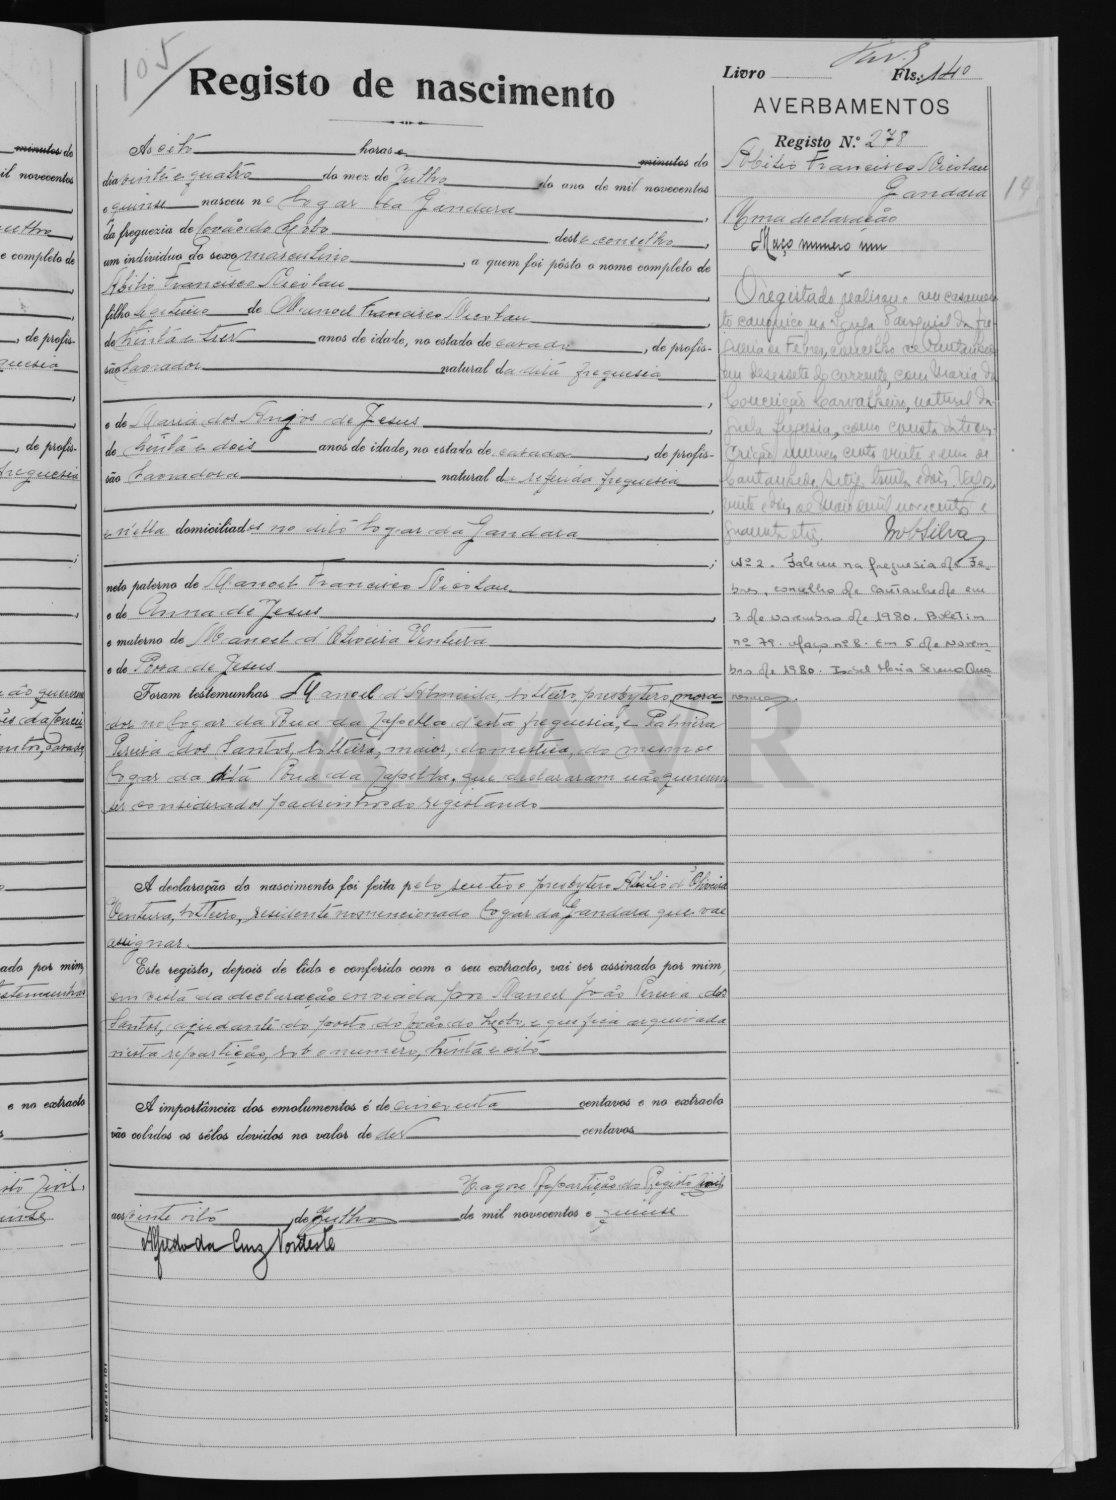 105
Registo de nascimento
As oito horas e minutos do
dia vinte e quatro do mez de Julho do ano de mil novecentos
e quinse nasceu no logar da Gandara,
da freguezia de Covão do Lobo deste concelho,
um individuo do sexo masculino, a quem foi pôsto o nome completo de
Abilio Francisco Nicolau,
filho legitimo de Manoel Francisco Nicolau,
de trinta e tres anos de idade, no estado de casado, de profis-
são lavrador natural da dita freguesia
e de Maria dos Anjos de Jesus,
de trinta e dois anos de idade, no estado de casada, de profis-
são lavradora natural da referida freguesia,
e n'ella domiciliados no dito logar da Gandara;
neto paterno de Manoel Francisco Nicolau
e de Anna de Jesus,
e materno de Manoel d'Oliveira Ventura
e de Rosa de Jesus
Foram testemunhas Manoel d'Almeida, solteiro, presbytero, mora-
dor no logar da Rua da Zapella d'esta freguesia, e Palmira
Pereira dos Santos, solteira, maior, domestica, do mesmo
logar da dita Rua da Zapella, que declararam não quererem
ser considerados padrinhos do registando
A declaração do nascimento foi feita pelo seu tio o presbytero Abilio d'Oliveira
Ventura, solteiro, residente no mencionado logar da Gandara que vae
assignar.
Este registo, depois de lido e conferido com o seu extracto, vai ser assinado por mim,
em vista da declaração enviada por Manoel João Pereira dos
Santos, ajudante do posto do Covão do Lobo, e que fica arquivada
nesta repartição, sob o numero, trinta e oito
A importância dos emolumentos é de cincoenta centavos e no extracto
vão colados os sêlos devidos no valor de dez centavos
Vagos Repartição do Registo Civil
aos vinte oito de Julho de mil novecentos e quinse
Alfredo da Cruz Nordeste
Modelo 101
Livro Fls. 140
AVERBAMENTOS
Registo N.º 278
Abilio Francisco Nicolau
Gandara
Uma declaração
Maço numero um
O registado realisou o seu casamen-
to canonico na Igreja Paroquial da fre-
guesia de Febres, concelho de Cantanhede
em desessete do corrente, com Maria da
Conceição Carvalheiro, natural da-
quela freguesia, como consta da trans-
crição numero cento vinte e um de
Cantanhede,
vinte e dois de Maio de mil novecentos e
quarenta e
Nº 2. Faleceu na freguesia de Fe-
bres, concelho de Cantanhede em
3 de novembro de 1980. Boletim
nº 79. Maço nº 8. Em 5 de Novem-
bro de 1980. Isabel Maria
ADAVR